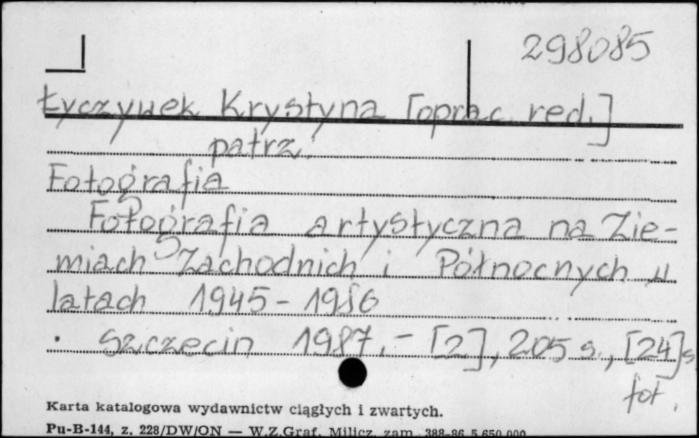 298085
Łyczywek Krystyna [oprac. red.]
patrz:
Fotografia
Fotografia artystyczna na Zie-
miach Zachodnich i Północnych w
latach 1945-1986
Szczecin 1987.- [2], 205 s., [24] s.
fot.
Karta katalogowa wydawnictw ciągłych i zwartych.
Pu-B-144, z. 228/DW/ON — W.Z.Graf. Milicz, zam. 388-86 5.650.000